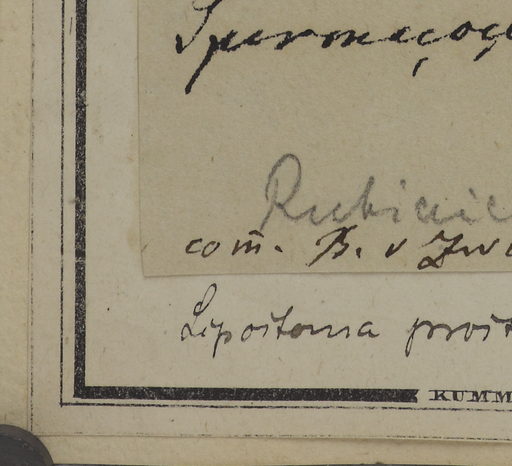 Spermacoc
Rubiac
com̄. B. v Zw
Lipostoma prost
KUMM